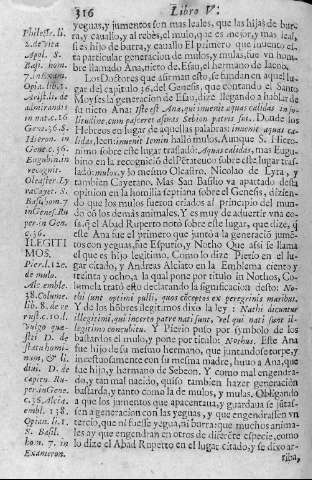 316 Libro V.
yeguas, y jumentos son mas leales, que las hijas de bur-
ra, y cauallo, y al rebès, el mulo, que es mejor, y mas leal,
si es hijo de burra, y cauallo El primero que inuento es-
ta particular generacion de mulos, y mulas, fue vn hom-
bre llamado Ana, nieto de Esau, el hermano de
Los Doctores que afirman esto, se fundan aquel lu-
gar del capitulo 36. del Genesis, que contando el Santo
Moyses la generacion de Esau, dize llegando a hablar de
su nieto Ana: iste est Ana, qui inuenit aquas calidas in so-
litudine, cum pasceret asinos Sebeon patris sui. Donde los
Hebreos en lugar de aquellas palabras: inuenit aquas ca-
lidas, leen: inuenit Iemin hallò mulos. Aunque S. Hiero-
nimo sobre este lugar trasladò: Aquas calidas, mas Eugu-
bino en la recognició del Pétateuco sobre este lugar tras-
ladò: mulos, y lo mesmo Oleastro, Nicolao de Lyra, y
tambien Cayetano. Mas San Basilio va apartado desta
opinion en la homilia septima sobre el Genesis, dizien-
do que los mulos fueron criados al principio del mun-
do cò los demàs animales. Y es muy de aduertir vna co-
sa, q̃ el Abad Ruperto notò sobre este lugar, que dize, q̃
este Ana fue el primero que juntò a la generació jumen-
tos con yeguas, fue Espurio, y Notho Que assi se llama
el que es hijo legitimo. Como lo dize Pierio en el lu-
gar citado, y Andres Alciato en la Emblema ciento y
treinta y ocho, a la qual pone por titulo in Nothos, Co-
lumela tratò esto declarando la significacion desto: No-
thi sunt optimi pulli, quos cóceptos ex peregrinis maribus.
Y de los hóbres ilegitimos dixo la ley: Nothi dicuntur
illegitimi, qui incerto patre nati sunt, vel qui nati sunt il-
legitimo concubitu. Y Pierio puso por symbolo de los
bastardos el mulo, y pone por titulo: Nothus. Este Ana
fue hijo de su mesmo hermano, que juntandose torpe, y
incestuosamente con su mesma madre, huuo a Ana, que
fue hija, y hermano de Sebeon. Y como mal engendra-
do, y tan mal nacido, quiso tambien hazer generación
bastarda, y tanto como la de mulos, y mulas. Obligando
a que los jumentos que apacentaua, y guardaua se juntas-
sen a generacion con las yeguas, y que engendrassen vn
tercio, que ni fuesse yegua, ni burra: que muchos anima-
les ay que engendran en otros de diferéte especie, como
lo dize el Abad Ruperto en el lugar citado, y se dixo ar-
riba,
Philost. li.
2. de vita
Apol. S.
Basi. hom.
7. in Exam.
Opia. lib. 1.
Arist. li. de
admirandis
in nat. c. 16
Gene. 36. S.
Hieron. in
Gene. c. 36.
Eugubin. in
recognis.
Oleaster. Ly
ra Cayet. S.
Basi. hom. 7
in Gene. Ru
per. in Gen
c. 36.
ILEGITI
MOS.
Pier. l. 12. c.
de mulo.
Alc. emble.
138. Colume.
lib. 8. de re
rust. c. 10. l.
vulgo quæ-
siti D. de
statu homi-
num, & li.
D. de
Ruper. in Gene.
c. 36. Alcia.
embl. 138.
Opian. li. 1.
S. Basil.
hom. 7. in
Exameron.